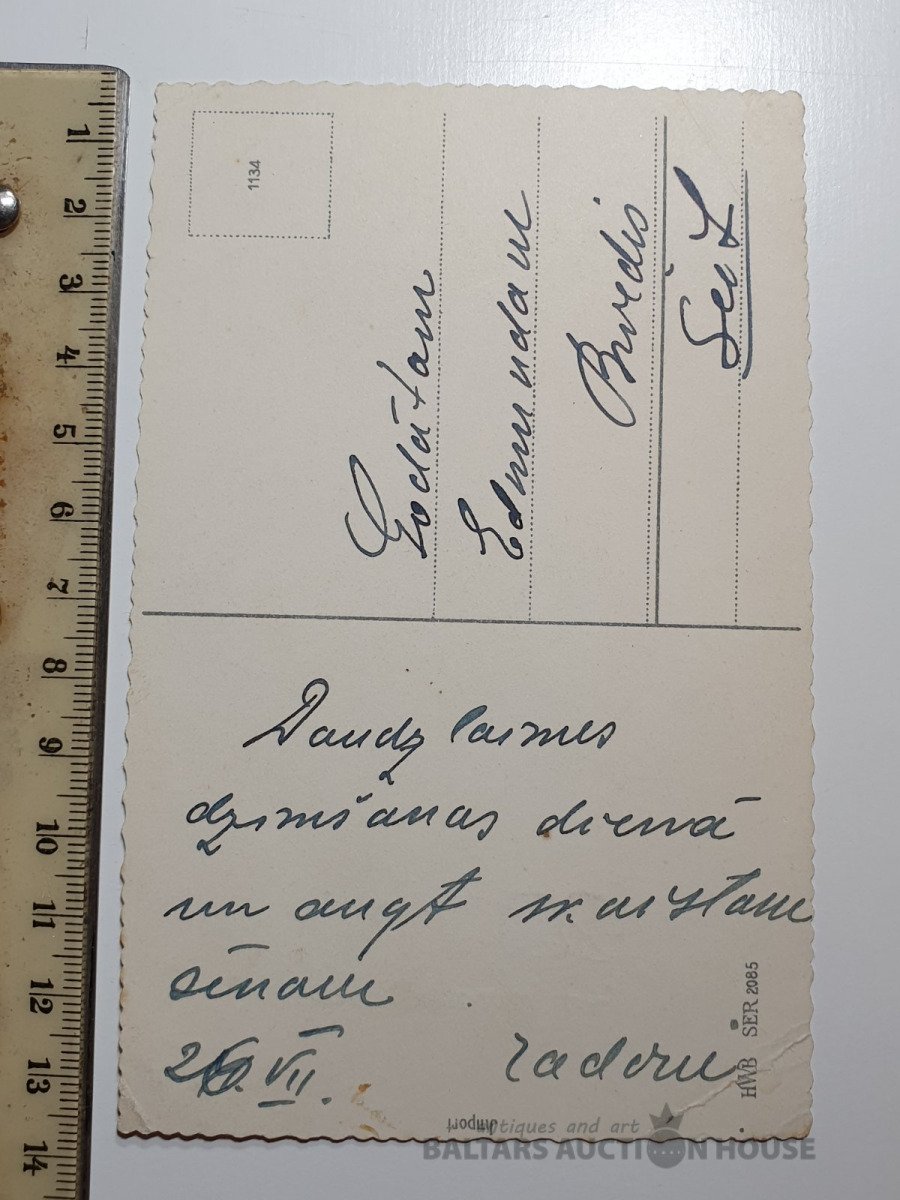 1134
Godātam
Edmundam
Briedis
Šeit
Daudz laimes
dzimšanas dienā
un augt skaistam
sēnam
26. VII.
Radom
HWB SER 2085
Import
antiques and art
BALTARS AUCTION HOUSE
1
2
3
4
5
6
7
8
9
10
11
12
13
14